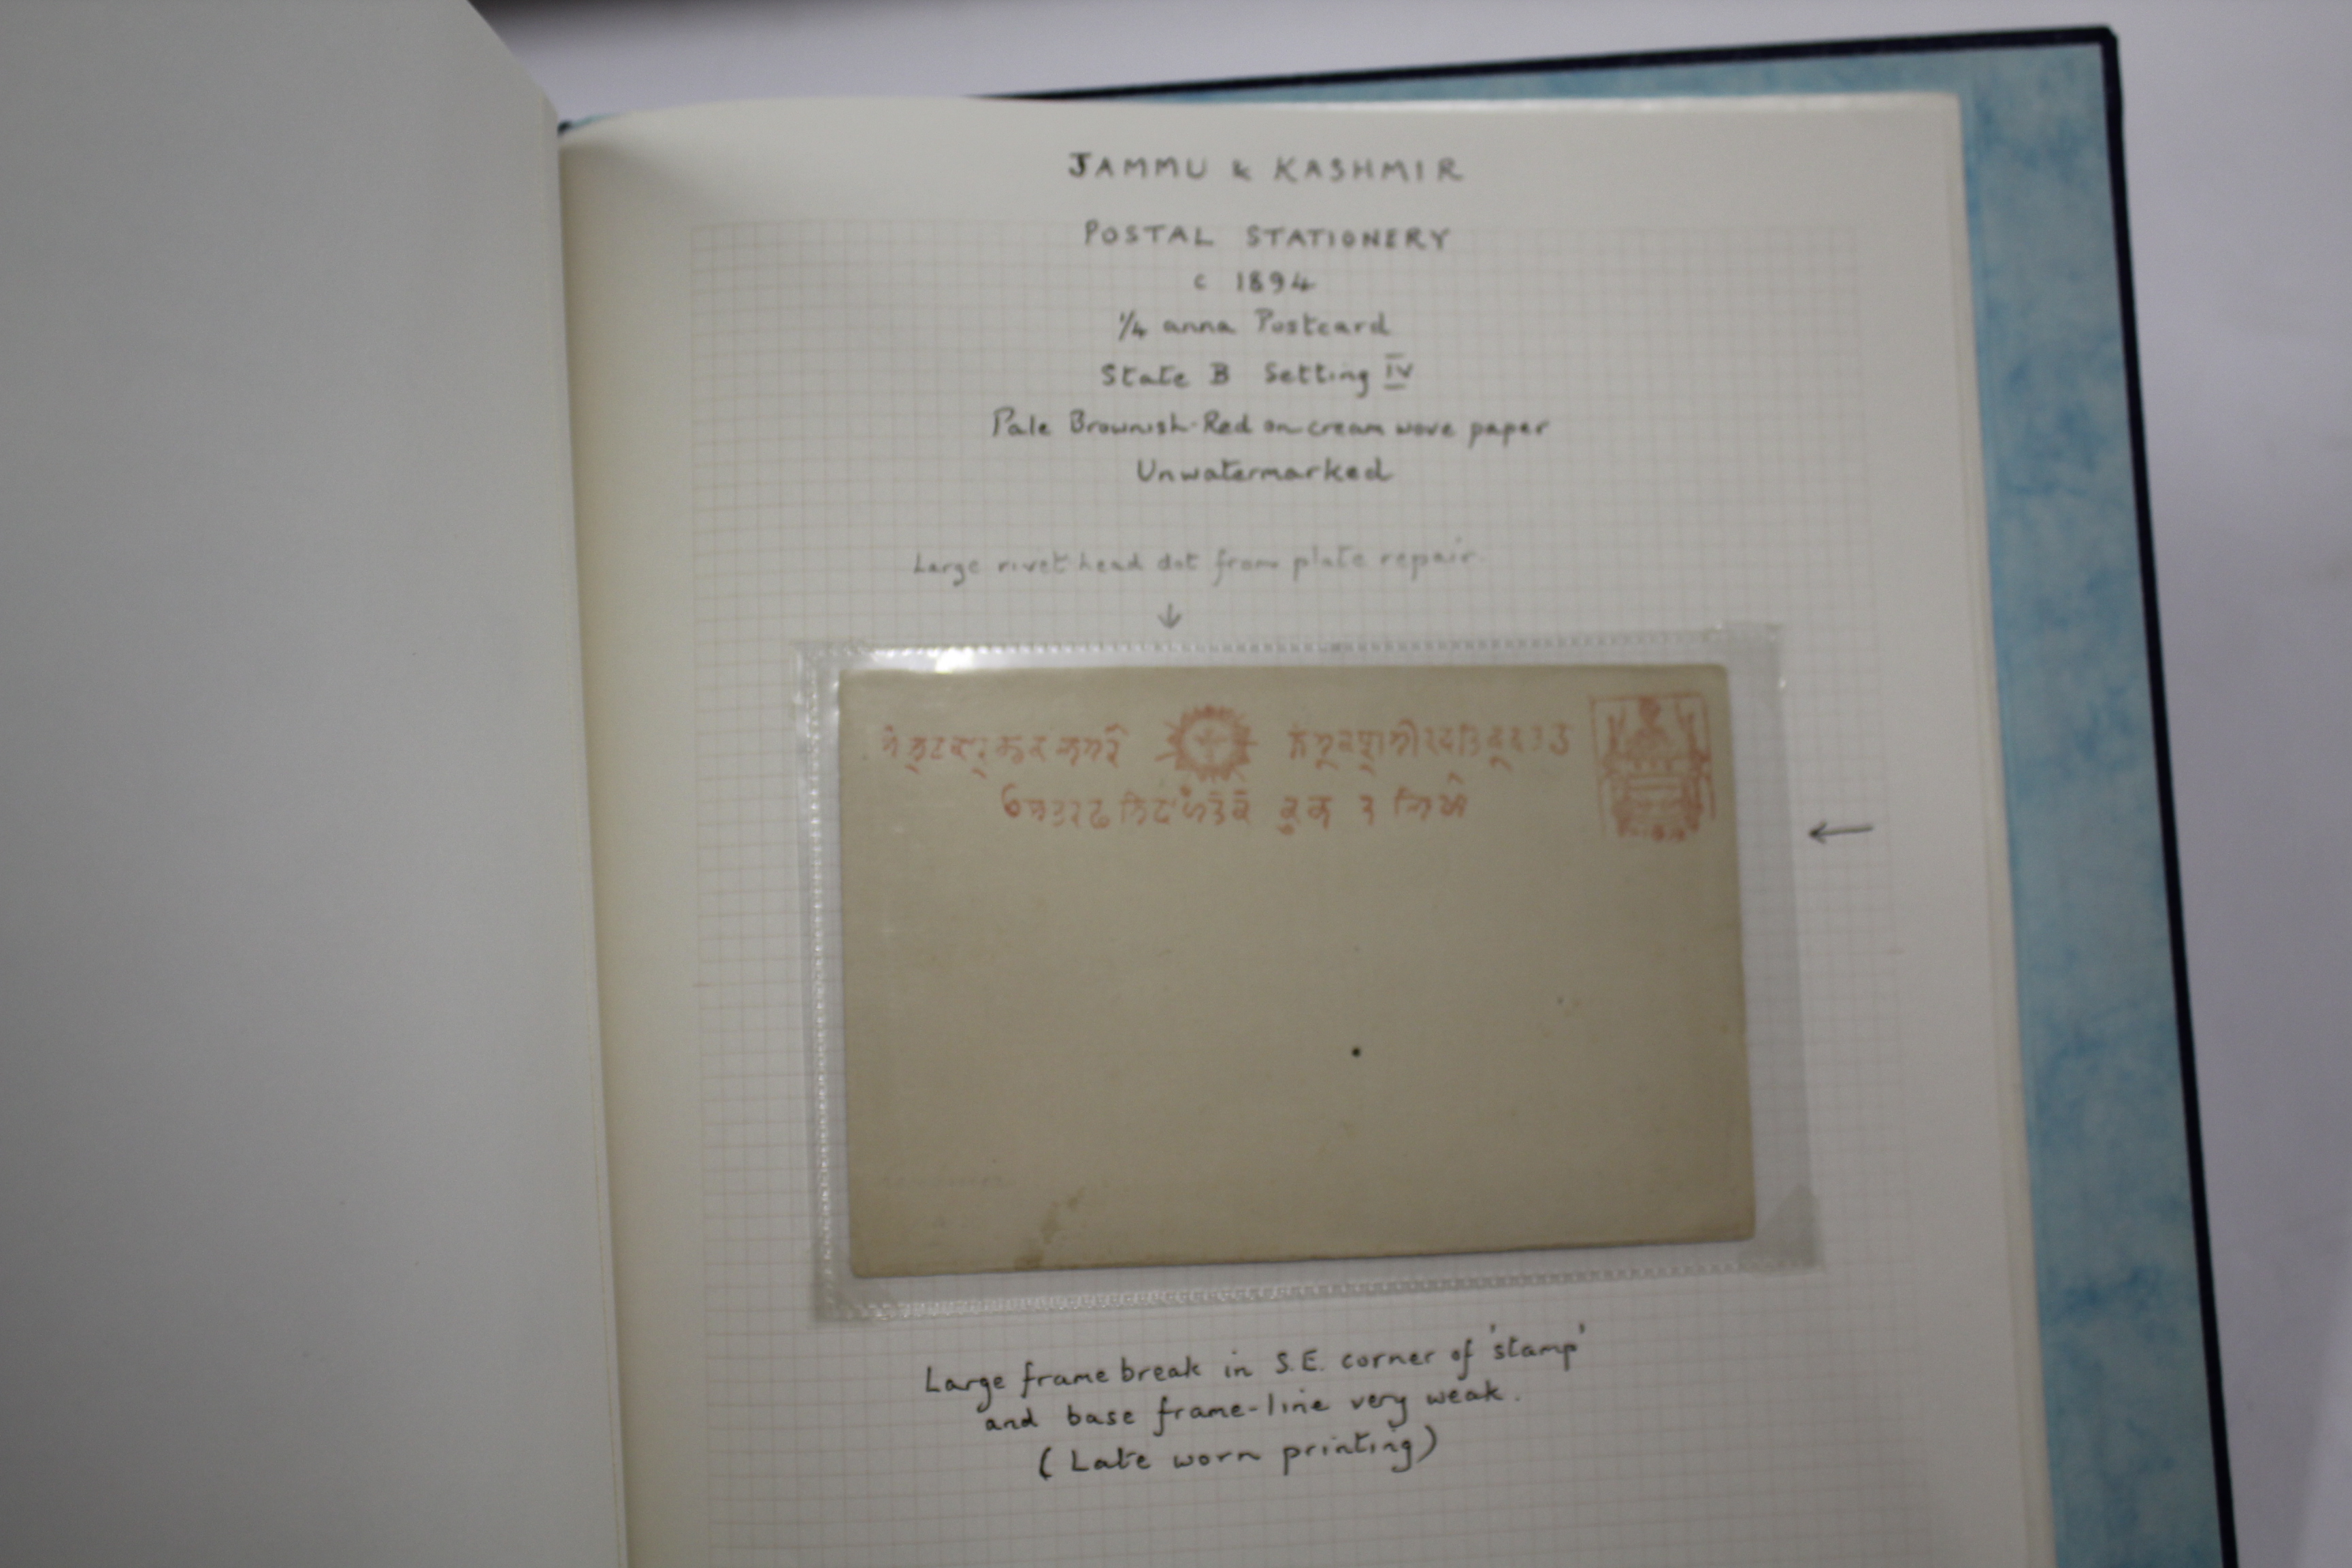 JAMMU & KASHMIR
POSTAL STATIONERY
c 1894
¼ anna Postcard
State B Setting IV
Pale Brownish-Red on cream wove paper
Unwatermarked
Large rivet-head dot from plate repair.
↓
←
Large frame break in S.E. corner of 'stamp'
and base frame-line very weak.
(Late worn printing)